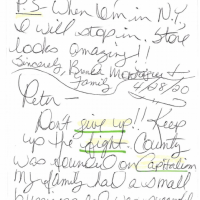 PS- When I'm in N.Y,
I will stop in. Store
looks amazing!!
Sincerely,
family 4/28/20
Peter-
Don't give up!! Keep
up the fight. Country
was founded on Capitalism
My family had a small